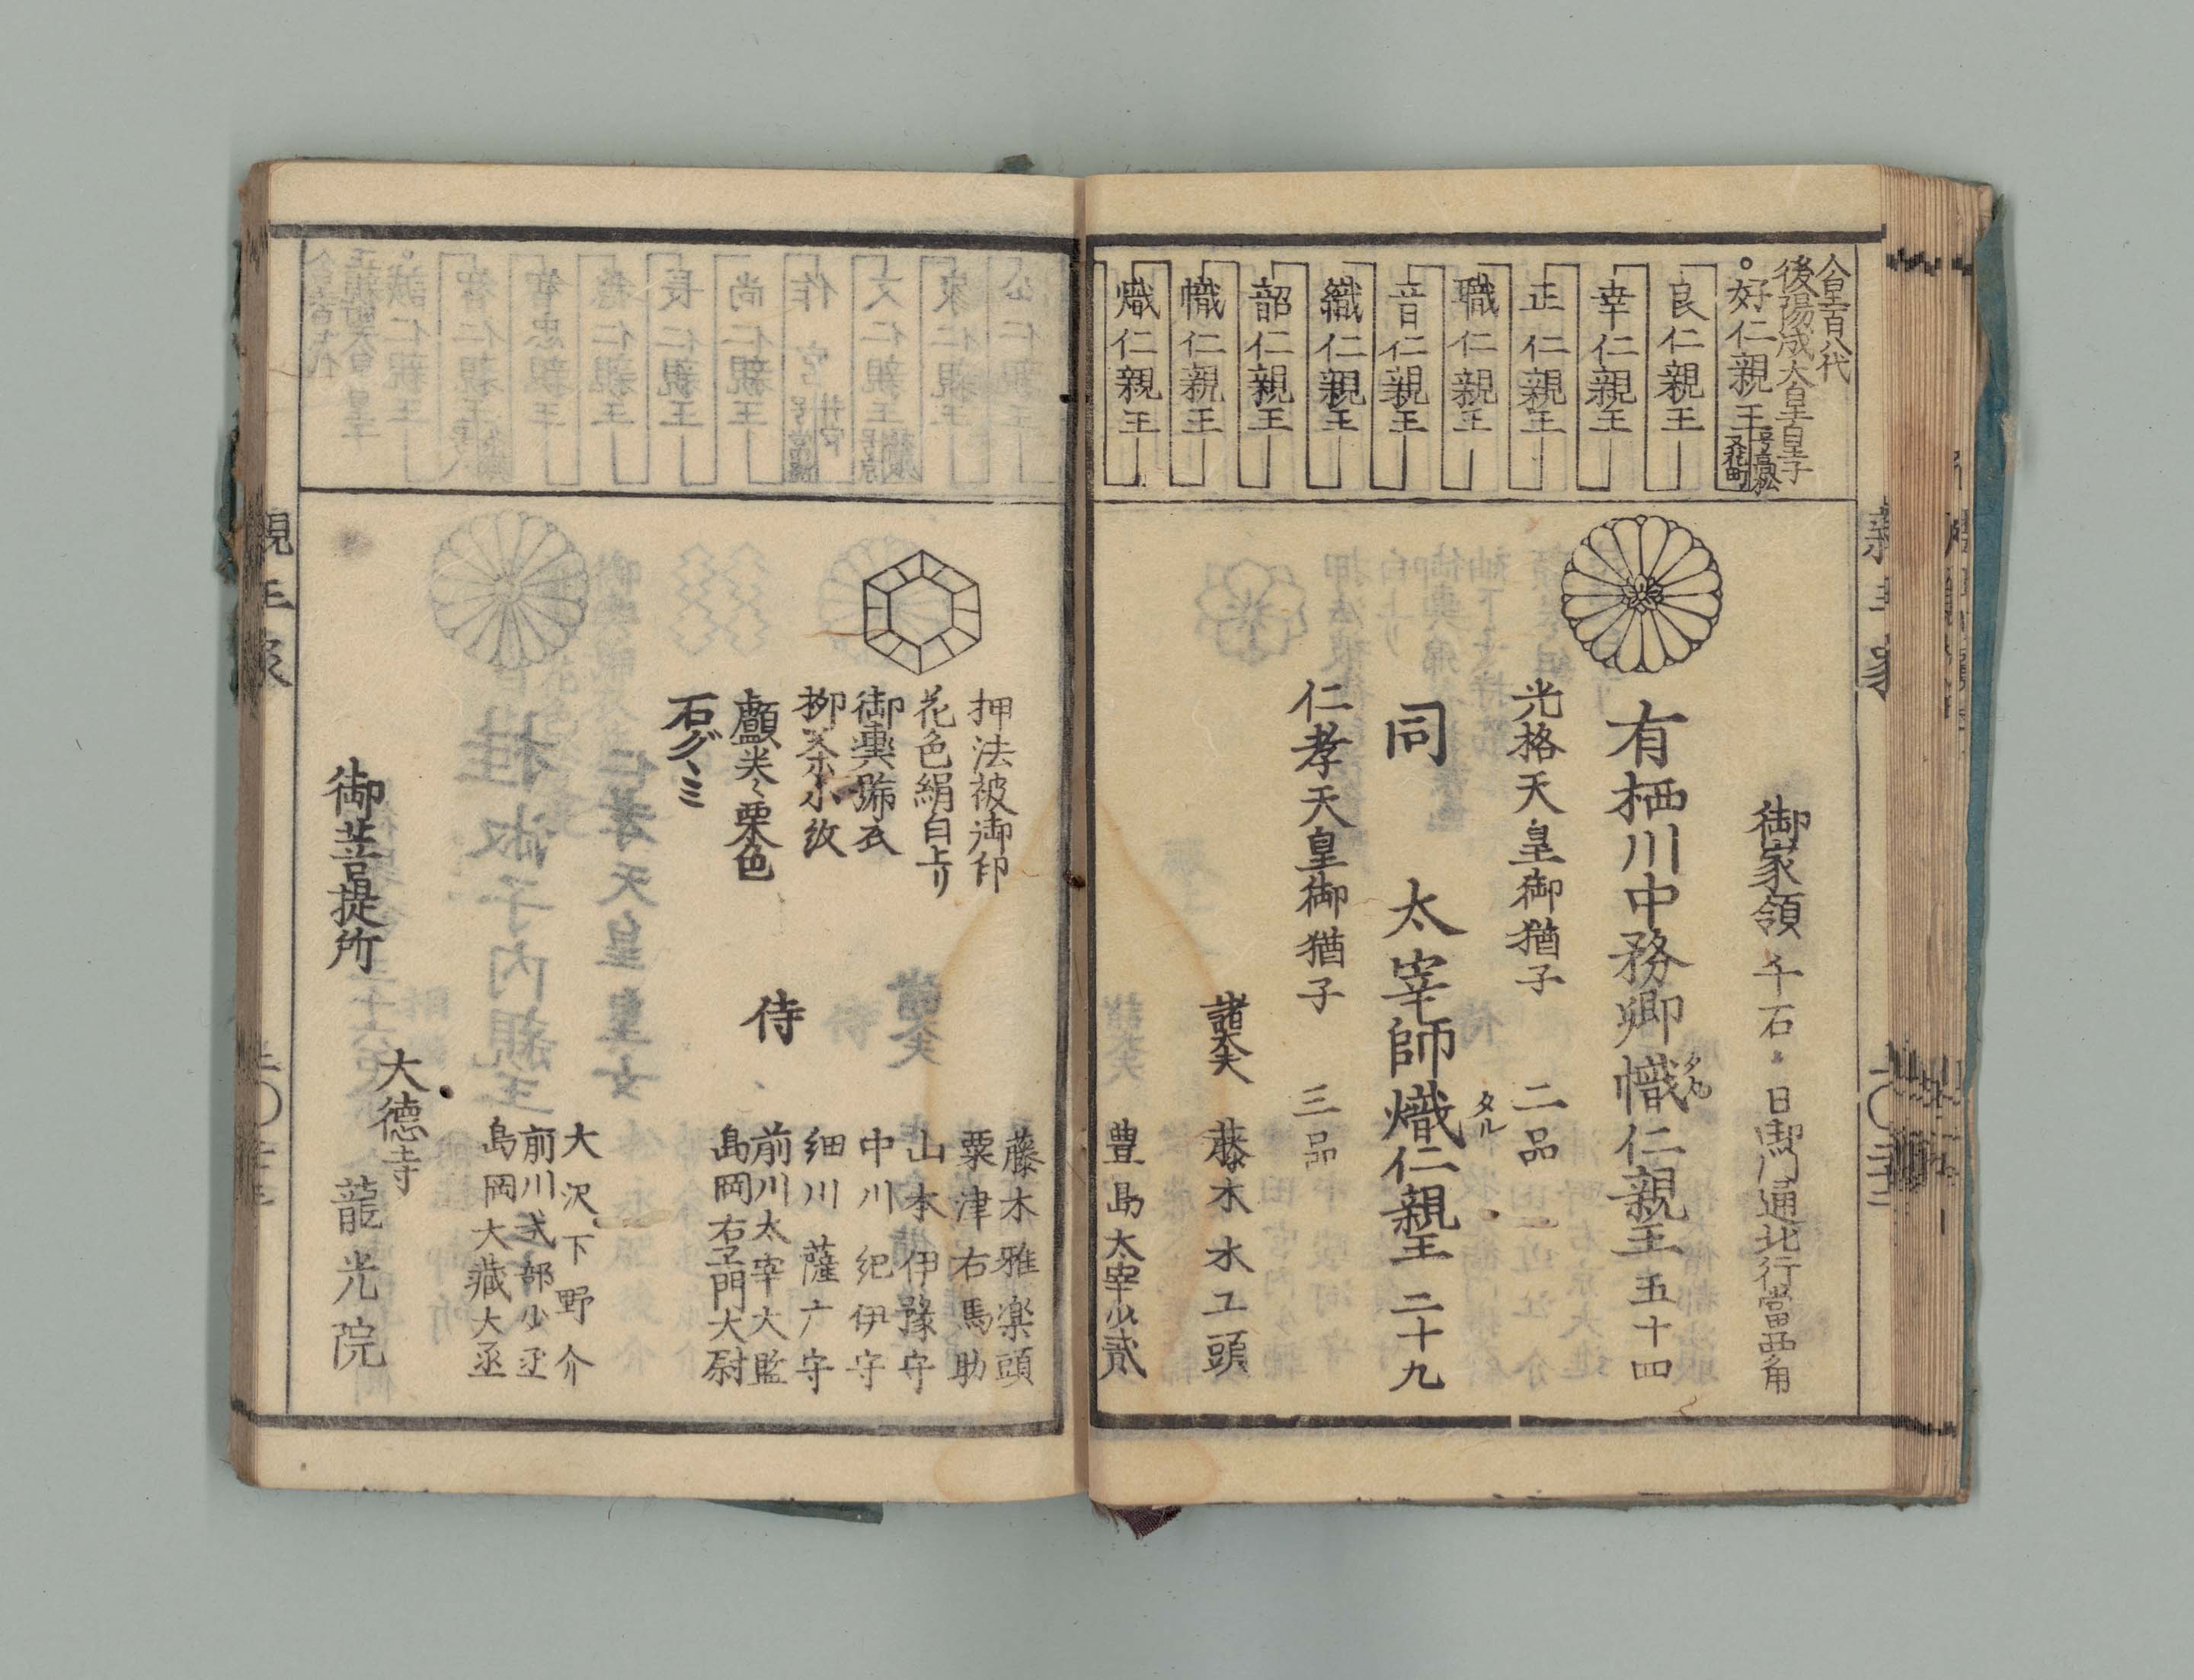 人皇百八代
後陽成天皇皇子
好仁親王
号高松
又花町
良仁親王
幸仁親王
正仁親王
職仁親王
音仁親王
織仁親王
韶仁親王
幟仁親王
熾仁親王
御家領 千石 日御門通北行當西角
有栖川中務卿幟仁親王 五十四
タカ
光格天皇御猶子 二品
同 太宰帥熾仁親王 二十九
タル
仁孝天皇御猶子 三品
諸大夫 藤木木工頭
豊島太宰少貳
押法被御印
花色絹白上り
御輿簱衣
柳茶小紋
石グミ
藤木雅楽頭
粟津右馬助
山本伊豫守
中川紀伊守
細川薩广守
侍 前川太宰大監
島岡右卫門大尉
大沢下野介
前川式部少丞
島岡大藏大丞
御菩提所
大德寺
龍光院
親王家